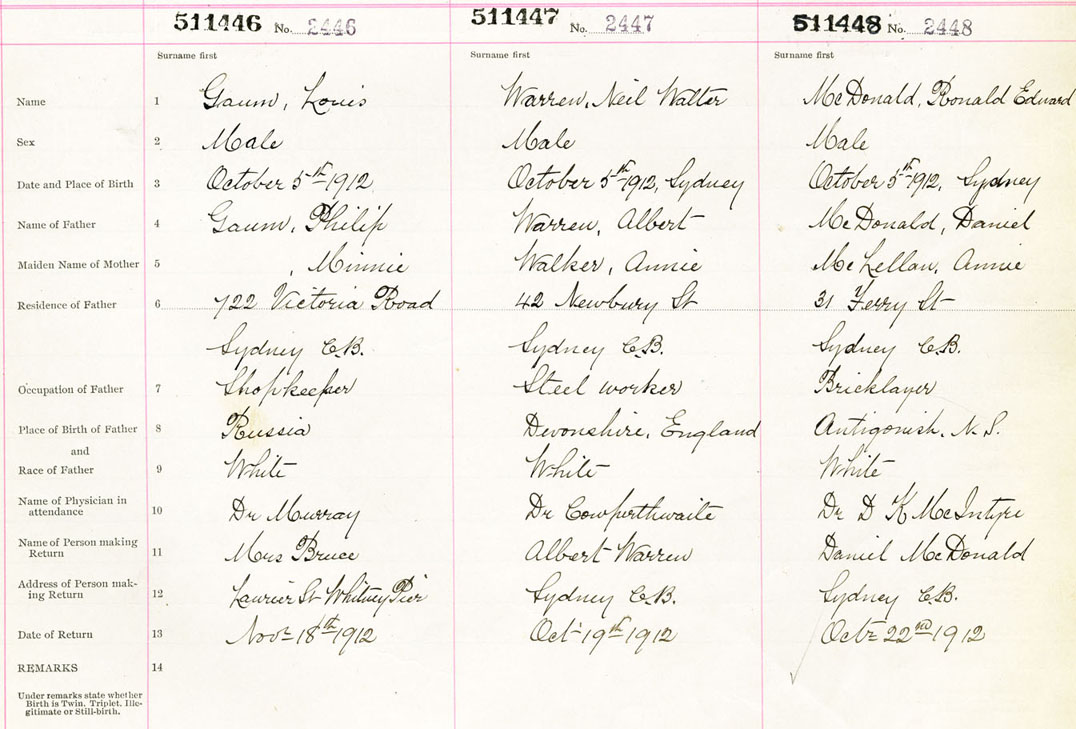 511446 No. 2446 511447 No. 2447 511448 No. 2448
Surname first Surname first Surname first
Name 1 Gaum, Louis Warren, Neil Walter McDonald, Ronald Edward
Sex 2 Male Male Male
Date and Place of Birth 3 October 5th 1912, October 5th 1912, Sydney October 5th 1912, Sydney
Name of Father 4 Gaum, Philip Warren, Albert McDonald, Daniel
Maiden Name of Mother 5 , Minnie Walker, Annie McLellan, Annie
Residence of Father 6 722 Victoria Road 42 Newbury St 31 Ferry St
Sydney C.B. Sydney C.B. Sydney C.B.
Occupation of Father 7 Shopkeeper Steel worker Bricklayer
Place of Birth of Father 8 Russia Devonshire, England Antigonish, N.S.
and
Race of Father 9 White White White
Name of Physician in
attendance 10 Dr Murray Dr Cowperthwaite Dr D K McIntyre
Name of Person making
Return 11 Mrs Bruce Albert Warren Daniel McDonald
Address of Person mak-
ing Return 12 Laurier St Whitney Pier Sydney C.B. Sydney C.B.
Date of Return 13 Novr 18th 1912 Oct 19th 1912 Octr 22nd 1912
REMARKS 14
Under remarks state whether
Birth is Twin, Triplet, Ille-
gitimate or Still-birth.